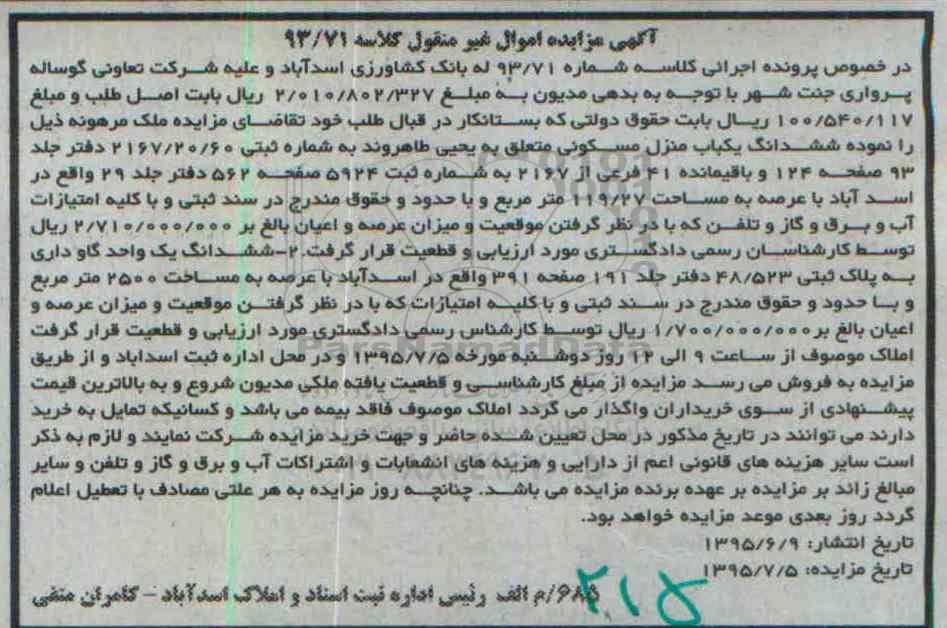 آگهی مزایده اموال غیر منقول کلاسه ۹۳/۷۱
در خصوص پرونده اجرائی کلاسه شماره ۹۳/۷۱ له بانک کشاورزی اسدآباد و علیه شرکت تعاونی گوساله
پرواری جنت شهر با توجه به بدهی مدیون به مبلغ ۲/۰۱۰/۸۰۲/۳۲۷ ریال بابت اصل طلب و مبلغ
۱۰۰/۵۴۰/۱۱۷ ریال بابت حقوق دولتی که بستانکار در قبال طلب خود تقاضای مزایده ملک مرهونه ذیل
را نموده ششدانگ یکباب منزل مسکونی متعلق به یحیی طاهروند به شماره ثبتی ۲۱۶۷/۲۰/۶۰ دفتر جلد
۹۳ صفحه ۱۲۴ و باقیمانده ۴۱ فرعی از ۲۱۶۷ به شماره ثبت ۵۹۲۴ صفحه ۵۶۲ دفتر جلد ۲۹ واقع در
اسد آباد با عرصه به مساحت ۱۱۹/۲۷ متر مربع و با حدود و حقوق مندرج در سند ثبتی و با کلیه امتیازات
آب و برق و گاز و تلفن که با در نظر گرفتن موقعیت و میزان عرصه و اعیان بالغ بر ۲/۷۱۰/۰۰۰/۰۰۰ ریال
توسط کارشناسان رسمی دادگستری مورد ارزیابی و قطعیت قرار گرفت.۲-ششدانگ یک واحد گاو داری
به پلاک ثبتی ۴۸/۵۲۳ دفتر جلد ۱۹۱ صفحه ۳۹۱ واقع در اسدآباد با عرصه به مساحت ۲۵۰۰ متر مربع
و با حدود و حقوق مندرج در سند ثبتی و با کلیه امتیازات که با در نظر گرفتن موقعیت و میزان عرصه و
اعیان بالغ بر ۱/۷۰۰/۰۰۰/۰۰۰ ریال توسط کارشناس رسمی دادگستری مورد ارزیابی و قطعیت قرار گرفت
املاک موصوف از ساعت ۹ الی ۱۲ روز دوشنبه مورخه ۱۳۹۵/۷/۵ و در محل اداره ثبت اسداباد و از طریق
مزایده به فروش می رسد مزایده از مبلغ کارشناسی و قطعیت یافته ملکی مدیون شروع و به بالاترین قیمت
پیشنهادی از سوی خریداران واگذار می گردد املاک موصوف فاقد بیمه می باشد و کسانیکه تمایل به خرید
دارند می توانند در تاریخ مذکور در محل تعیین شده حاضر و جهت خرید مزایده شرکت نمایند و لازم به ذکر
است سایر هزینه های قانونی اعم از دارایی و هزینه های انشعابات و اشتراکات آب و برق و گاز و تلفن و سایر
مبالغ زائد بر مزایده بر عهده برنده مزایده می باشد. چنانچه روز مزایده به هر علتی مصادف با تعطیل اعلام
گردد روز بعدی موعد مزایده خواهد بود.
تاریخ انتشار: ۱۳۹۵/۶/۹
تاریخ مزایده: ۱۳۹۵/۷/۵
۶۸۵/م الف رئیس اداره ثبت اسناد و املاک اسدآباد - کامران متقی
ParsNamadData